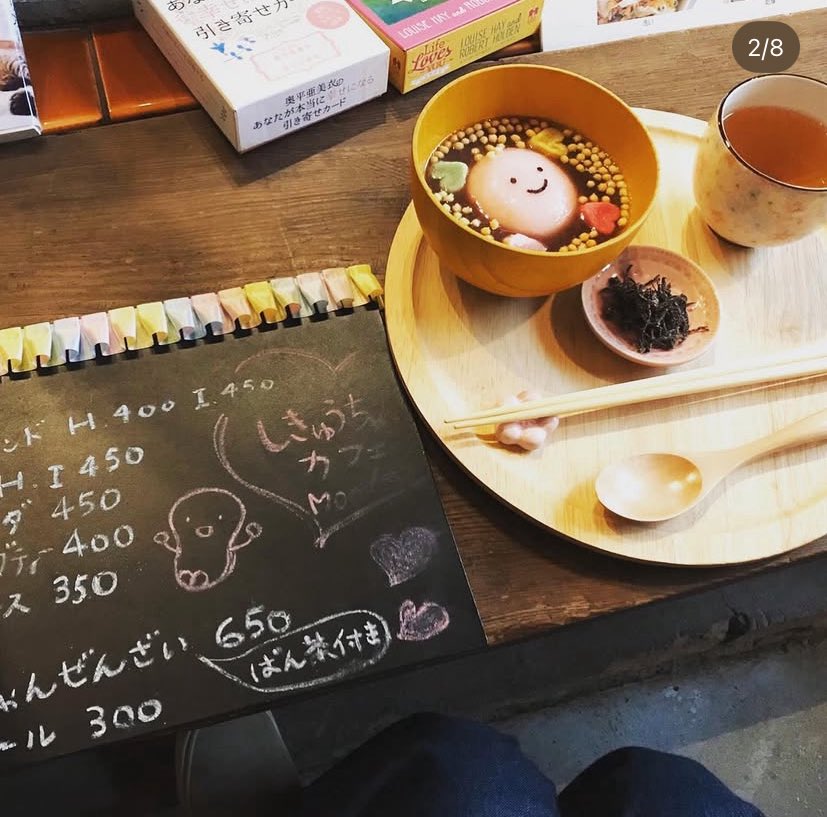 2/8
引き寄せカード
奥平亜美衣の
あなたが本当に幸せになる
引き寄せカード
LOUISE HAY and
Life Loves You
LOUISE HAY and
ROBERT HOLDEN
ンド H.400 I.450
H.I 450
ダ 450
ブティー 400
ス 350
んぜんざい 650
ばん茶付き
ール 300
しきゅうち
カフェ